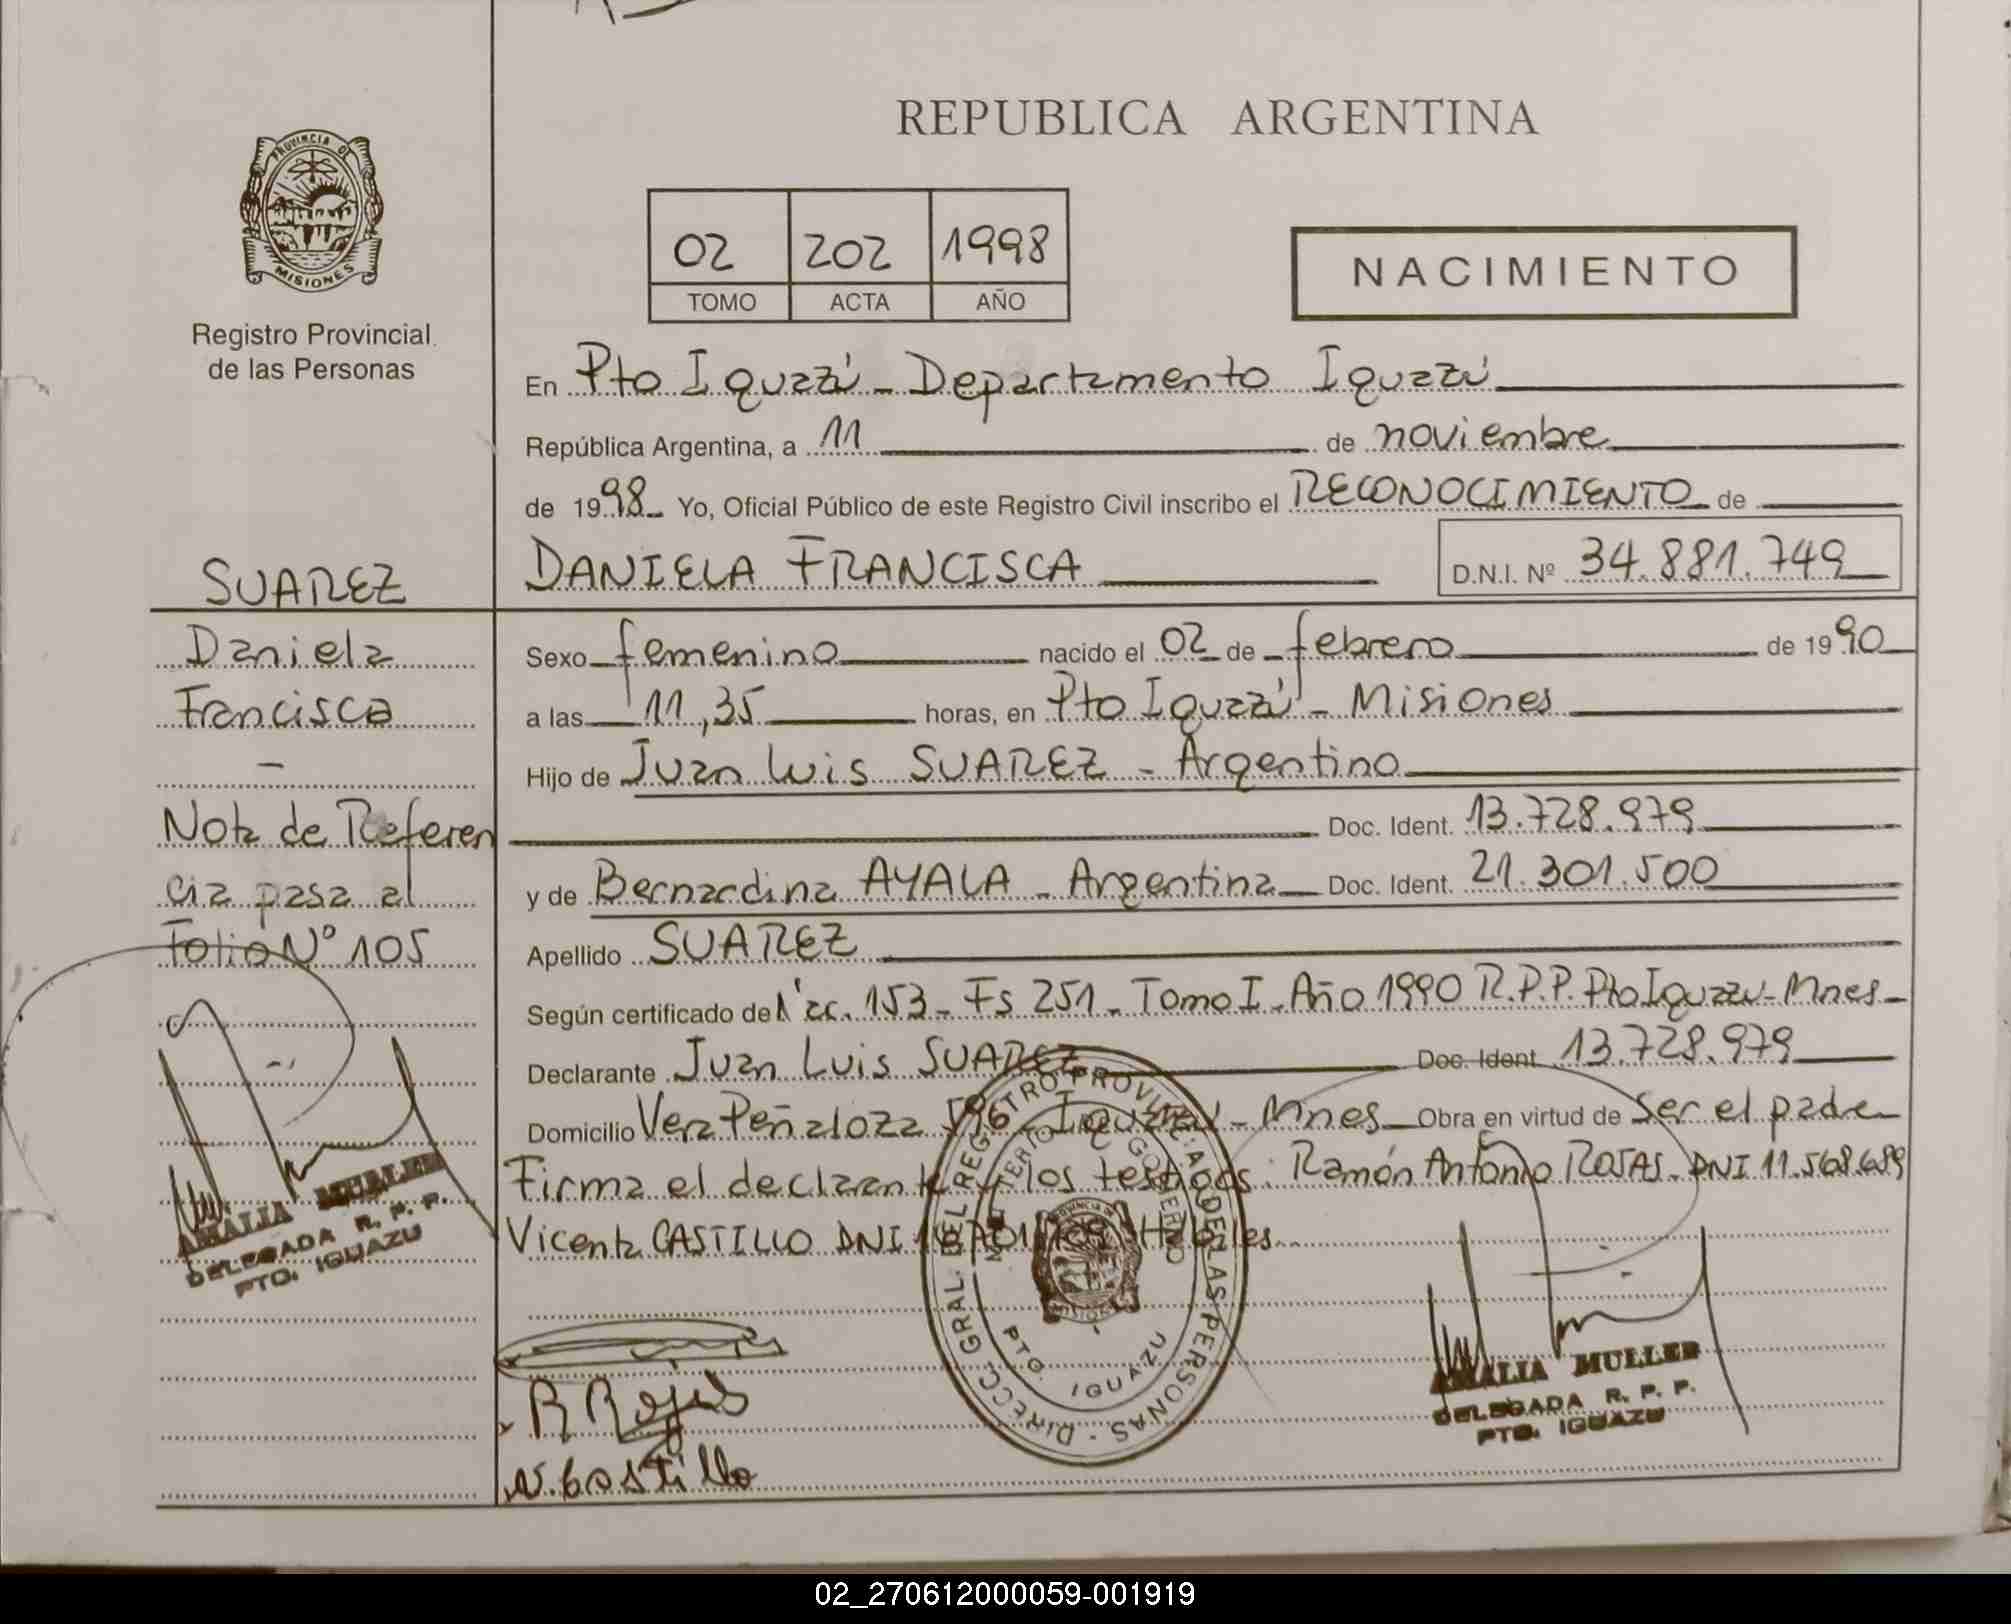 REPUBLICA ARGENTINA
PROVINCIA DE
MISIONES
Registro Provincial
de las Personas
02 202 1998
TOMO ACTA AÑO
NACIMIENTO
En Pto Iguazú - Departamento Iguazú
República Argentina, a 11 de noviembre
de 1998 Yo, Oficial Público de este Registro Civil inscribo el RECONOCIMIENTO de
DANIELA FRANCISCA D.N.I. Nº 34.881.749
Sexo femenino nacido el 02 de febrero de 1990
a las 11,35 horas, en Pto Iguazú - Misiones
Hijo de Juan Luis SUAREZ - Argentino
Doc. Ident. 13.728.979
y de Bernardina AYALA - Argentina Doc. Ident. 21.301.500
Apellido SUAREZ
Según certificado de Ac. 153 - Fs 251 - Tomo I - Año 1990 R.P.P. Pto Iguazu - Mnes -
Declarante Juan Luis SUAREZ Doc. Ident. 13.728.979
Domicilio Vera Peñaloza 596 - Iguazu - Mnes Obra en virtud de Ser el padre
Firma el declarante y los testigos: Ramón Antonio ROJAS - DNI 11.568.689
Vicenta CASTILLO DNI Hábiles
SUAREZ
Daniela
Francisca
-
Nota de Referen
cia pasa al
Folio Nº 105
AMALIA MULLER
DELEGADA R. P. P.
PTO. IGUAZU
R Rojas
V. Castillo
DIRECC. GRAL. DEL REGISTRO PROVINCIAL DE LAS PERSONAS
PTO. IGUAZU
AMALIA MULLER
DELEGADA R. P. P.
PTO. IGUAZU
02_270612000059-001919